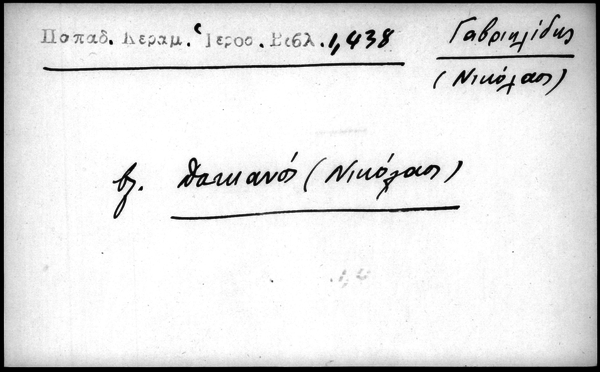 Παπαδ. Κεραμ. Ἱεροσ. Βιβλ. 1,438
Γαβριηλίδης
(Νικόλαος)
βλ. (Νικόλαος)